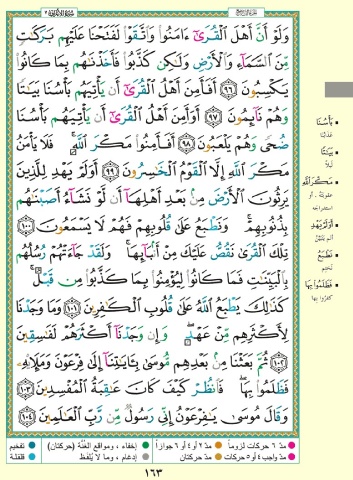 وَلَوْ أَنَّ أَهْلَ ٱلْقُرَىٰٓ ءَامَنُوا۟ وَٱتَّقَوْا۟ لَفَتَحْنَا عَلَيْهِم بَرَكَٰتٍ
مِّنَ ٱلسَّمَآءِ وَٱلْأَرْضِ وَلَٰكِن كَذَّبُوا۟ فَأَخَذْنَٰهُم بِمَا كَانُوا۟
يَكْسِبُونَ ٩٦ أَفَأَمِنَ أَهْلُ ٱلْقُرَىٰٓ أَن يَأْتِيَهُم بَأْسُنَا بَيَٰتًا
وَهُمْ نَآئِمُونَ ٩٧ أَوَأَمِنَ أَهْلُ ٱلْقُرَىٰٓ أَن يَأْتِيَهُم بَأْسُنَا
ضُحًى وَهُمْ يَلْعَبُونَ ٩٨ أَفَأَمِنُوا۟ مَكْرَ ٱللَّهِ ۚ فَلَا يَأْمَنُ
مَكْرَ ٱللَّهِ إِلَّا ٱلْقَوْمُ ٱلْخَٰسِرُونَ ٩٩ أَوَلَمْ يَهْدِ لِلَّذِينَ
يَرِثُونَ ٱلْأَرْضَ مِنۢ بَعْدِ أَهْلِهَآ أَن لَّوْ نَشَآءُ أَصَبْنَٰهُم
بِذُنُوبِهِمْ ۚ وَنَطْبَعُ عَلَىٰ قُلُوبِهِمْ فَهُمْ لَا يَسْمَعُونَ ١٠٠
تِلْكَ ٱلْقُرَىٰ نَقُصُّ عَلَيْكَ مِنْ أَنۢبَآئِهَا ۚ وَلَقَدْ جَآءَتْهُمْ رُسُلُهُم
بِٱلْبَيِّنَٰتِ فَمَا كَانُوا۟ لِيُؤْمِنُوا۟ بِمَا كَذَّبُوا۟ مِن قَبْلُ ۚ
كَذَٰلِكَ يَطْبَعُ ٱللَّهُ عَلَىٰ قُلُوبِ ٱلْكَٰفِرِينَ ١٠١ وَمَا وَجَدْنَا
لِأَكْثَرِهِم مِّنْ عَهْدٍ ۖ وَإِن وَجَدْنَآ أَكْثَرَهُمْ لَفَٰسِقِينَ
١٠٢ ثُمَّ بَعَثْنَا مِنۢ بَعْدِهِم مُّوسَىٰ بِـَٔايَٰتِنَآ إِلَىٰ فِرْعَوْنَ وَمَلَإِي۟هِۦ
فَظَلَمُوا۟ بِهَا ۖ فَٱنظُرْ كَيْفَ كَانَ عَٰقِبَةُ ٱلْمُفْسِدِينَ ١٠٣
وَقَالَ مُوسَىٰ يَٰفِرْعَوْنُ إِنِّى رَسُولٌ مِّن رَّبِّ ٱلْعَٰلَمِينَ ١٠٤
بَأْسُنَا
عَذَابُنَا
بَيَٰتًا
لَيْلًا
مَكْرَ ٱللَّهِ
عُقُوبَتَهُ . أَوِ
اسْتِدْرَاجَهُ
أَوَلَمْ يَهْدِ
نَطْبَعُ
نَخْتِمُ
فَظَلَمُوا۟ بِهَا
كَفَرُوا بِهَا
مدّ ٦ حركات لزوماً مدّ ٢ أو ٤ أو ٦ جوازاً إخفاء ، ومواقع الغُنَّة (حركتان) تفخيم
مدّ واجب ٤ أو ٥ حركات مدّ حركتان إدغام ، وما لا يُلفَظ قلقلة
١٦٣